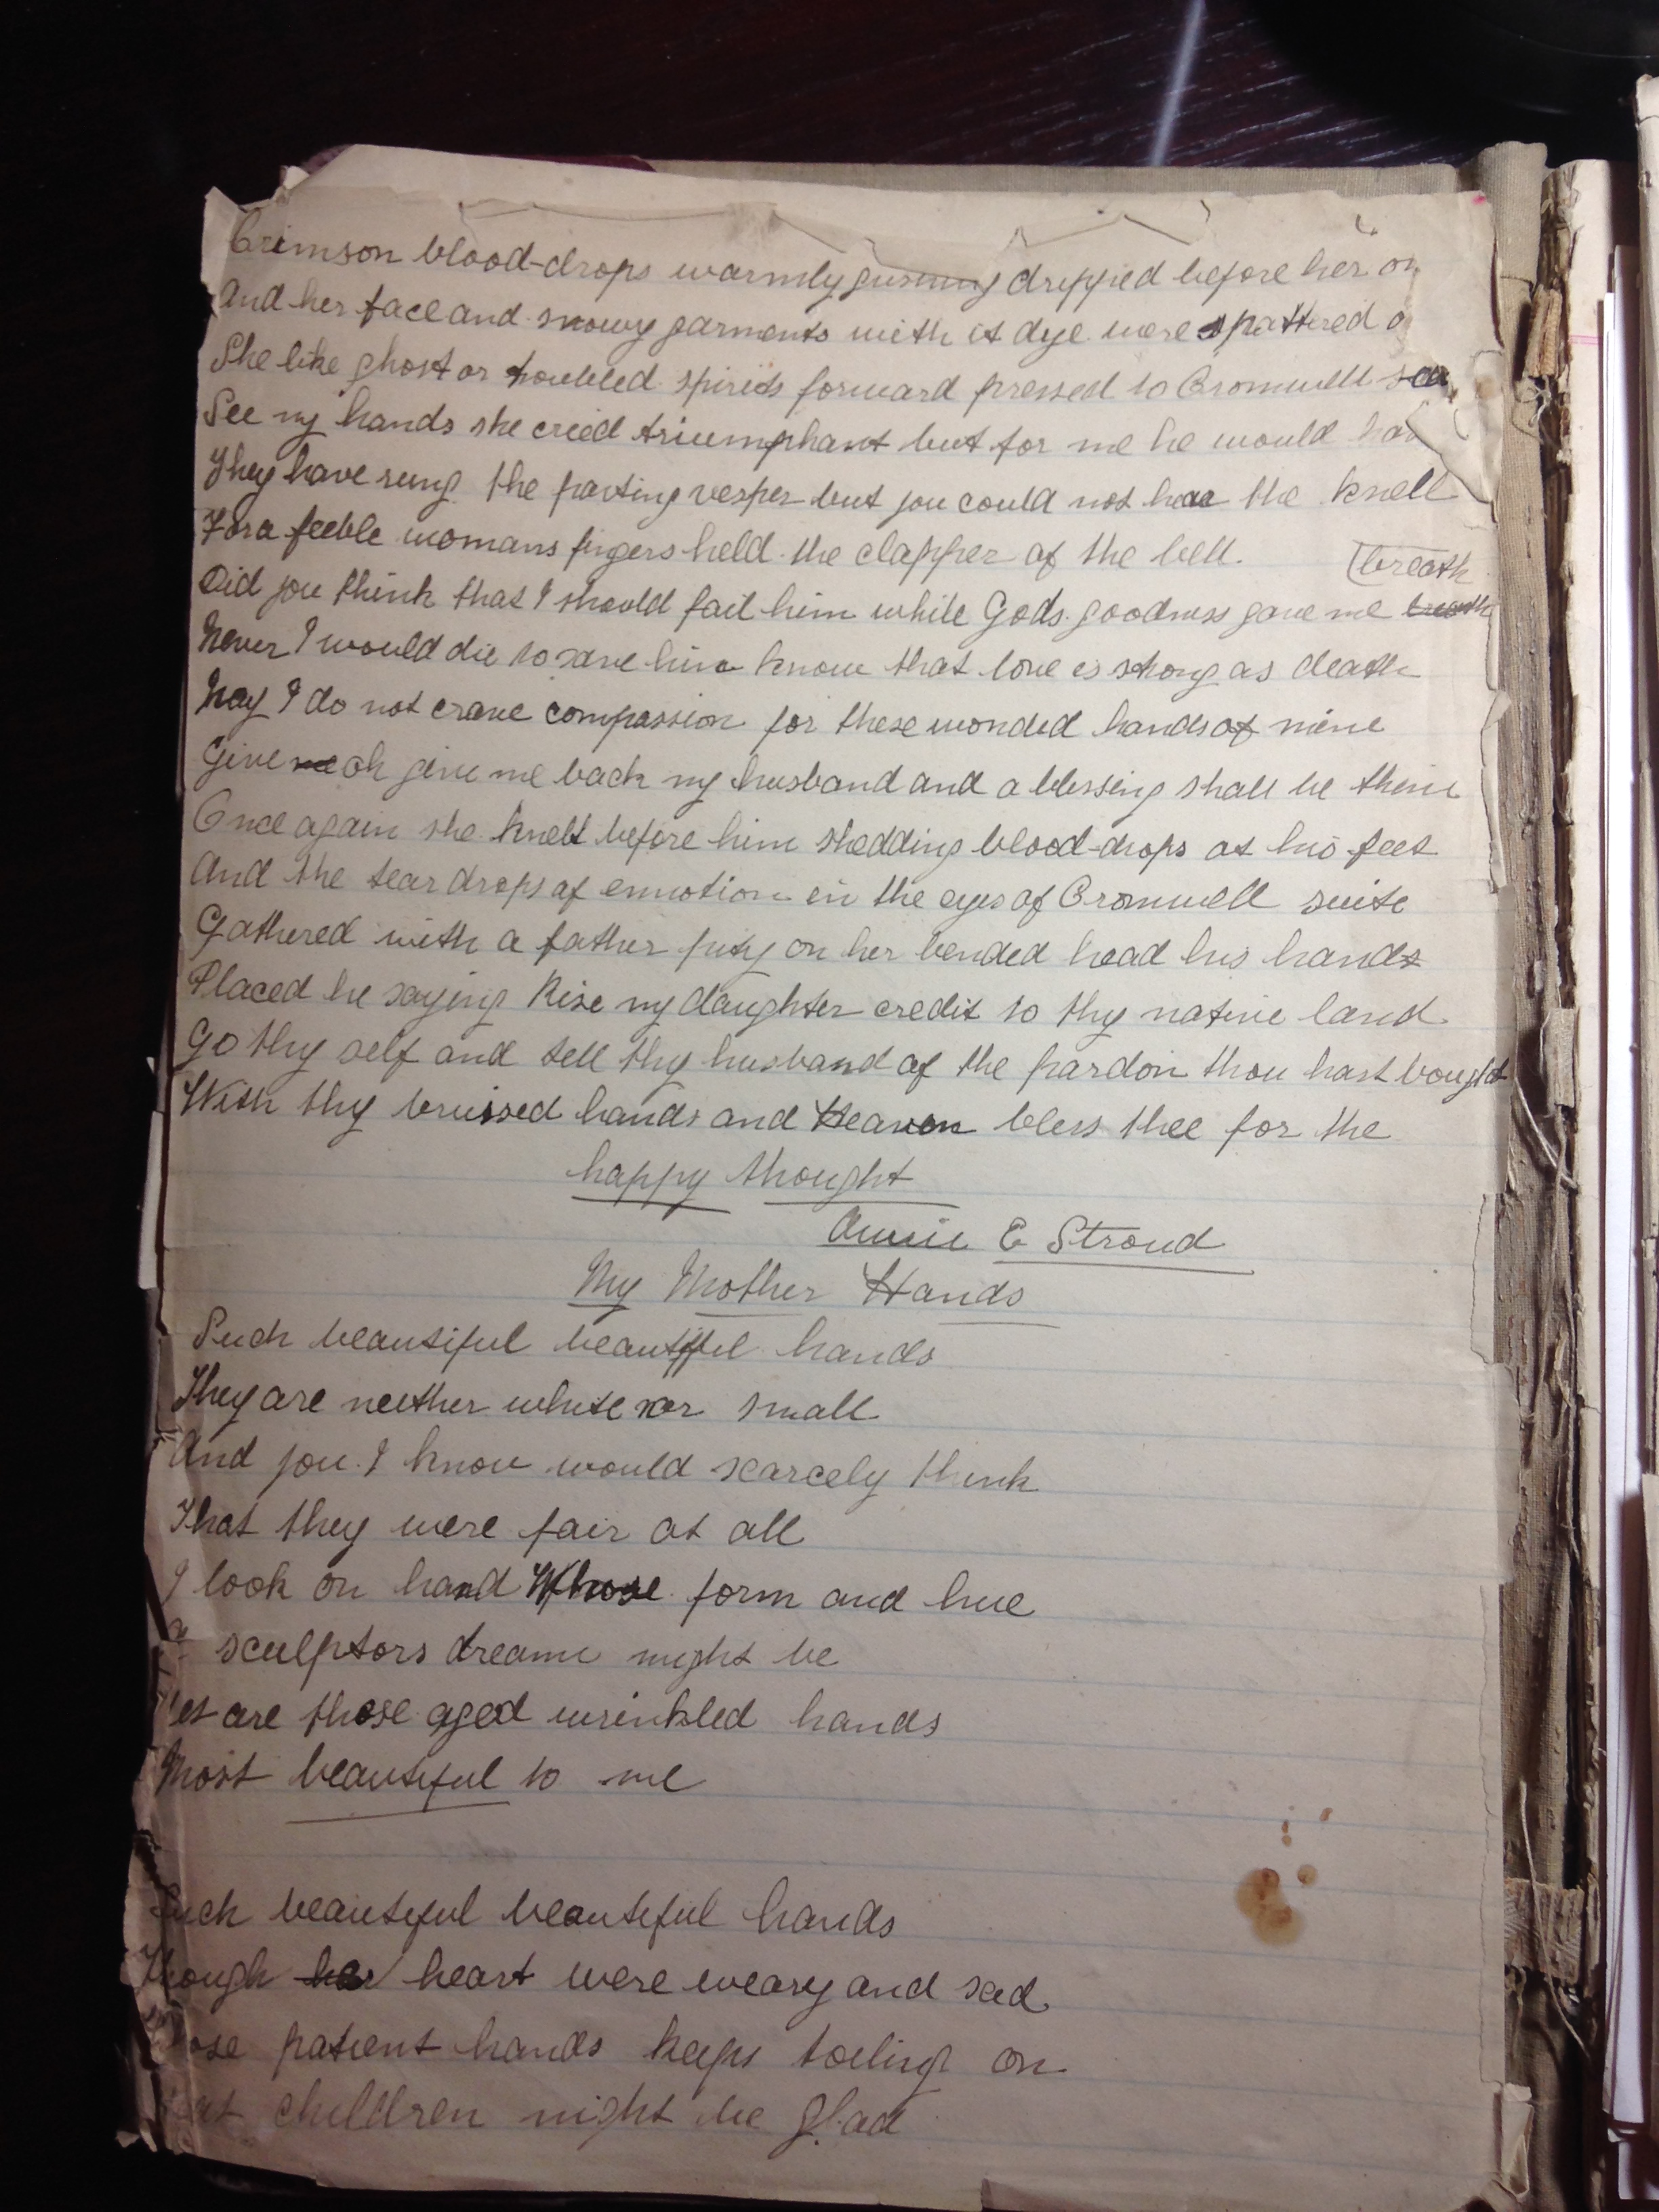 Crimson blood-drops warmly gushing dripped before her on
And her face and snowy garments with it dye were spattered
She like ghost or troubled spirits forward pressed to Cromwell
See my hands she cried triumphant but for me he would
They have rung the parting vesper but you could not hear the knell
For a feeble womans fingers held the clapper of the bell.
breath
Did you think that I should fail him while Gods goodness gave me breath
Never I would die to save him know that love is strong as death
Nay I do not crave compassion for these wonded hands of mine
Give me oh give me back my husband and a blessing shall be thine
Once again she knelt before him shedding blood-drops at his feet
And the tear drops of emmotion in the eyes of Cromwell
Gathered with a father pity on her bended head his hands
Placed he saying Rise my daughter credit to thy native land
Go thy self and tell thy husband of the pardon thou hast bought
With thy bruissed hands and Heaven bless thee for the
happy thought
Annie E Stroud
My Mother Hands
Such beautiful beautiful hands
They are neither white nor small
And you I know would scarcely think
That they were fair at all
I look on hand Whose form and hue
a sculptors dream might be
Yet are those aged wrinkled hands
Most beautiful to me
Such beautiful beautiful hands
Though her heart were weary and sad
patient hands keeps toiling on
children might be glad